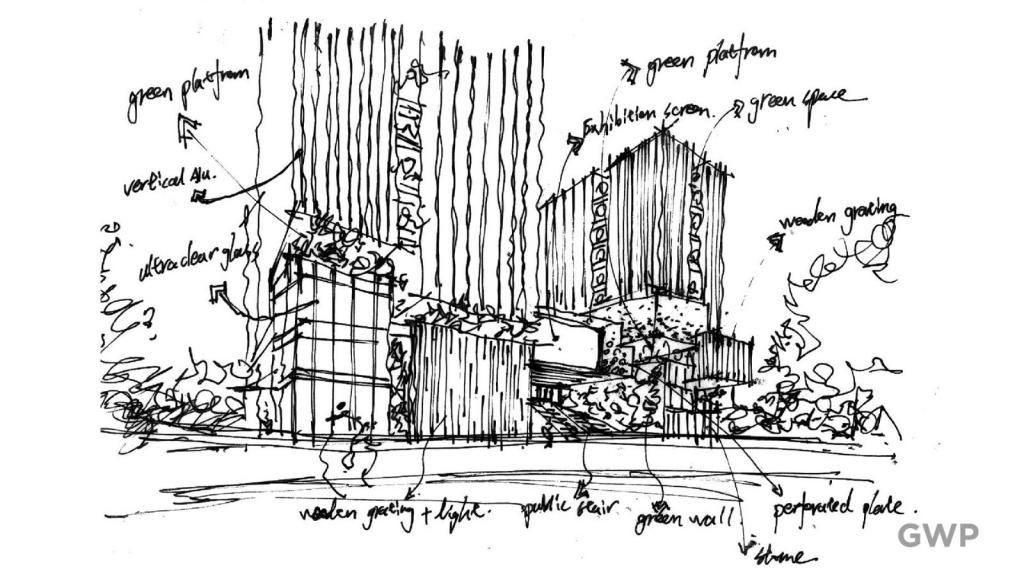 green platfrom
green platfrom
Exhibition screen.
green space
vertical Alu.
ultraclear glass
wooden grating
wooden grating + light.
public stair
green wall.
perforated plate.
stone
GWP